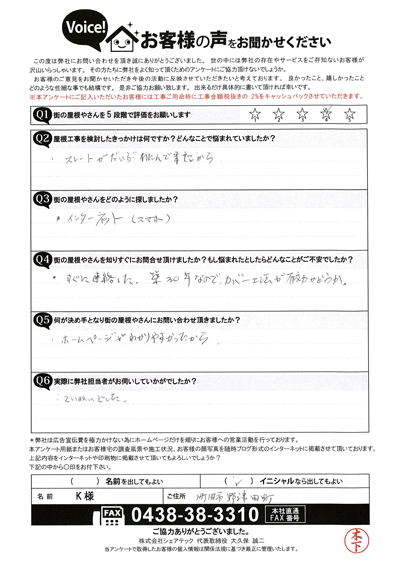 Voice!
お客様の声をお聞かせください
この度は弊社にお問い合わせを頂き誠にありがとうございました。 世の中には弊社の存在やサービスをご存知ないお客様が
沢山いらっしゃいます。 その方たちに弊社をよく知って頂くためのアンケートにご協力頂けないでしょうか。
お客様のご意見をお聞かせいただき今後の活動に反映させていただきたいと考えております。 良かったこと、嬉しかったこと
どのような些細な事でも結構です。 是非ご協力お願い致します。 出来るだけ具体的に書いて頂ければ幸いです。
※本アンケートにご記入いただいたお客様には工事ご用命時に工事金額税抜きの 2%をキャッシュバックさせていただきます。
Q1 街の屋根やさんを5段階で評価をお願いします ☆ ☆ ☆ ☆ ☆
Q2 屋根工事を検討したきっかけは何ですか?どんなことで悩まれていましたか?
・スレートがだいぶ
Q3 街の屋根やさんをどのように探しましたか?
・インターネット (スマホ)
Q4 街の屋根やさんを知りすぐにお問合せ頂けましたか?もし悩まれたとしたらどんなことがご不安でしたか?
・すぐに連絡した。 築30年なので、カバー工法が有効かどうか。
Q5 何が決め手となり街の屋根やさんにお問い合わせ頂きましたか?
・ホームページがわかりやすかったから
Q6 実際に弊社担当者がお伺いしていかがでしたか?
・ていねいでした。
*弊社は広告宣伝費を極力かけない為にホームページだけを頼りにお客様への営業活動を行っております。
本アンケート用紙またはお客様宅の調査風景や施工状況、お客様の顔写真を随時ブログ形式のインターネットに掲載させて頂いております。
上記内容をインターネットや印刷物に掲載させて頂いてもよろしいでしょうか?
下記の中から〇印をお付下さい。
( ) 名前を出してもよい ( ✓ ) イニシャルなら出してもよい
名 前 K様 ご住所 町田市 野津田町
FAX 0438-38-3310 本社直通 FAX番号
ご協力ありがとうございました。
株式会社シェアテック 代表取締役 大久保 誠二
当アンケートで取得したお客様の個人情報は関係法規に基づき厳正に管理いたします。
木下